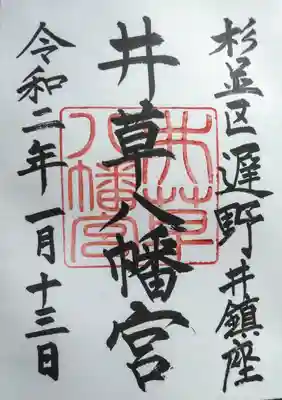 杉並区遅野井鎮座
井草八幡宮
令和二年一月十三日
井草八幡宮